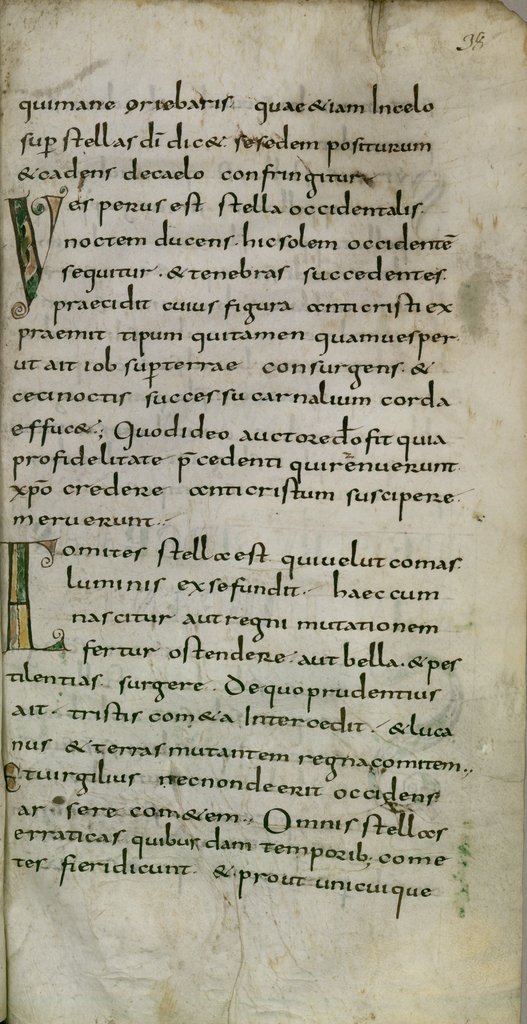 38
quimane oriebaris. quae &iam In celo
sup̄ stellas dī dic& se sedem positurum
& cadens decaelo confringitur
Vesperus est stella occidentalis.
noctem ducens. hic solem occidentē
sequitur. & tenebras succedentes.
praecidit cuius figura anticristi ex
praemit tipum quitamen quamuesper.
ut ait iob sup̄ terrae consurgens. &
ceci noctis successu carnalium corda
effuc&; Quod ideo auctore dō fit quia
profidelitate p̄cedenti qui renuerunt.
xp̄o credere anticristum suscipere.
meruerunt.
Comites stellae est qui uelut comas
luminis ex se fundit. haec cum
nascitur aut regni mutationem
fertur ostendere. aut bella. & pes
tilentias surgere. De quo prudentius
ait. tristis com&a Intercedit. & luca
nus & terras mutantem regna comitem.,
Et uirgilius nec non deerit occidens
ar sere com&em., Omnis stellas
erraticas quibus dam temporib; come
tes fieri dicunt. & prout unicuique